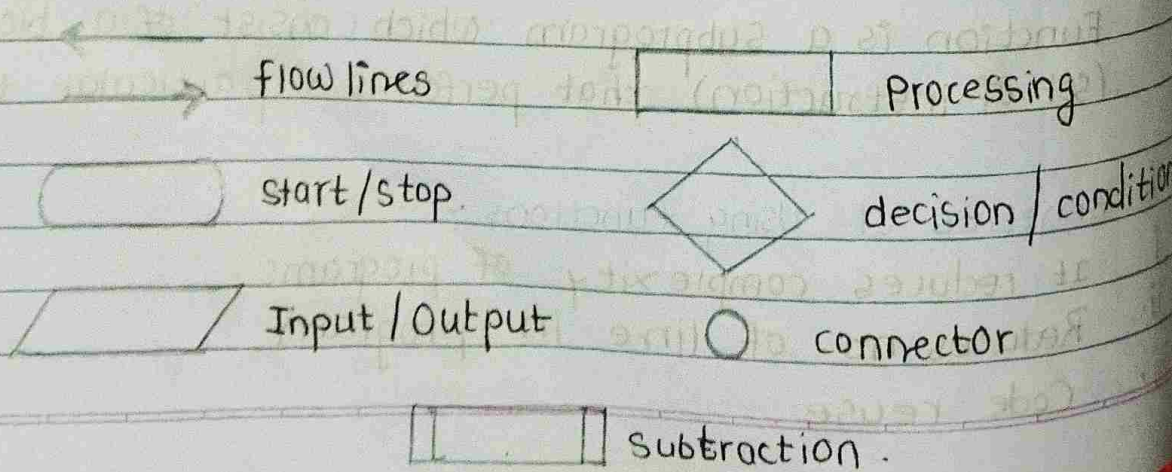 flow lines
Processing
start/stop.
decision / condition
Input / Output
connector
subtraction.